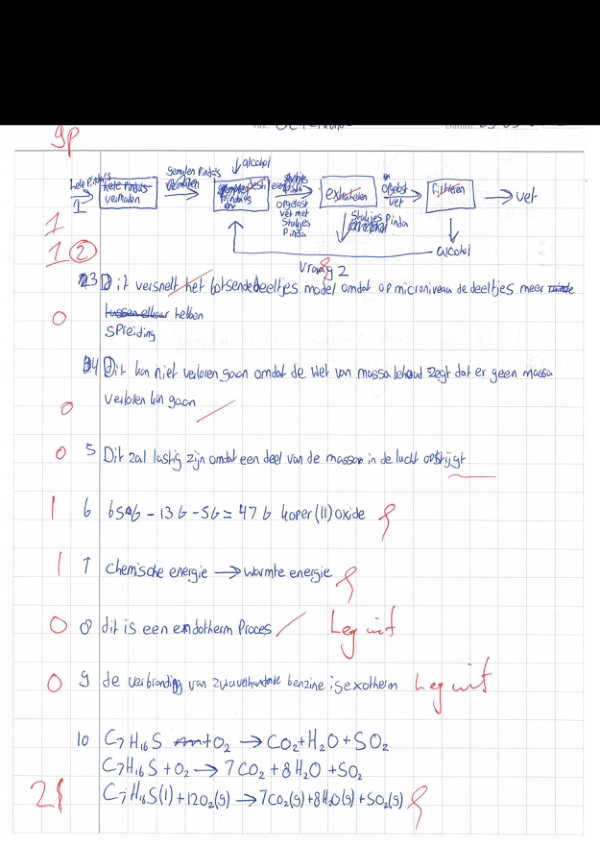 9p
↓alcohol
hele Pinda's
hele Pinda's
vermalen
Gemalen Pinda's
vermalen
opgelost
vet met
Stukjes
Pinda
extraheren
opgelost
vet
filtreren
→ vet
Stukjes Pinda
alcohol
1
1 2
Vraag 2
3 Dit versnelt het botsendedeeltjes model omdat op microniveau de deeltjes meer
tussen elkaar hebben
0
SPreiding
4 Dit kan niet verloren gaan omdat de wet van massa behoud zegt dat er geen massa
verloren kan gaan
0
0 5 Dit zal lastig zijn omdat een deel van de massa in de lucht opstijgt
1 6 65g - 13 g - 5g = 47 g koper (II) oxide
1 7 Chemische energie → warmte energie
0 8 dit is een endotherm Proces Leg uit
0 9 de verbranding van benzine is exotherm Leg uit
10 C7H16S + O2 → CO2+H2O + SO2
C7H16S + O2 → 7CO2 + 8H2O + SO2
2 C7H16S(l) + 12O2(g) → 7CO2(g) + 8H2O(g) + SO2(g)